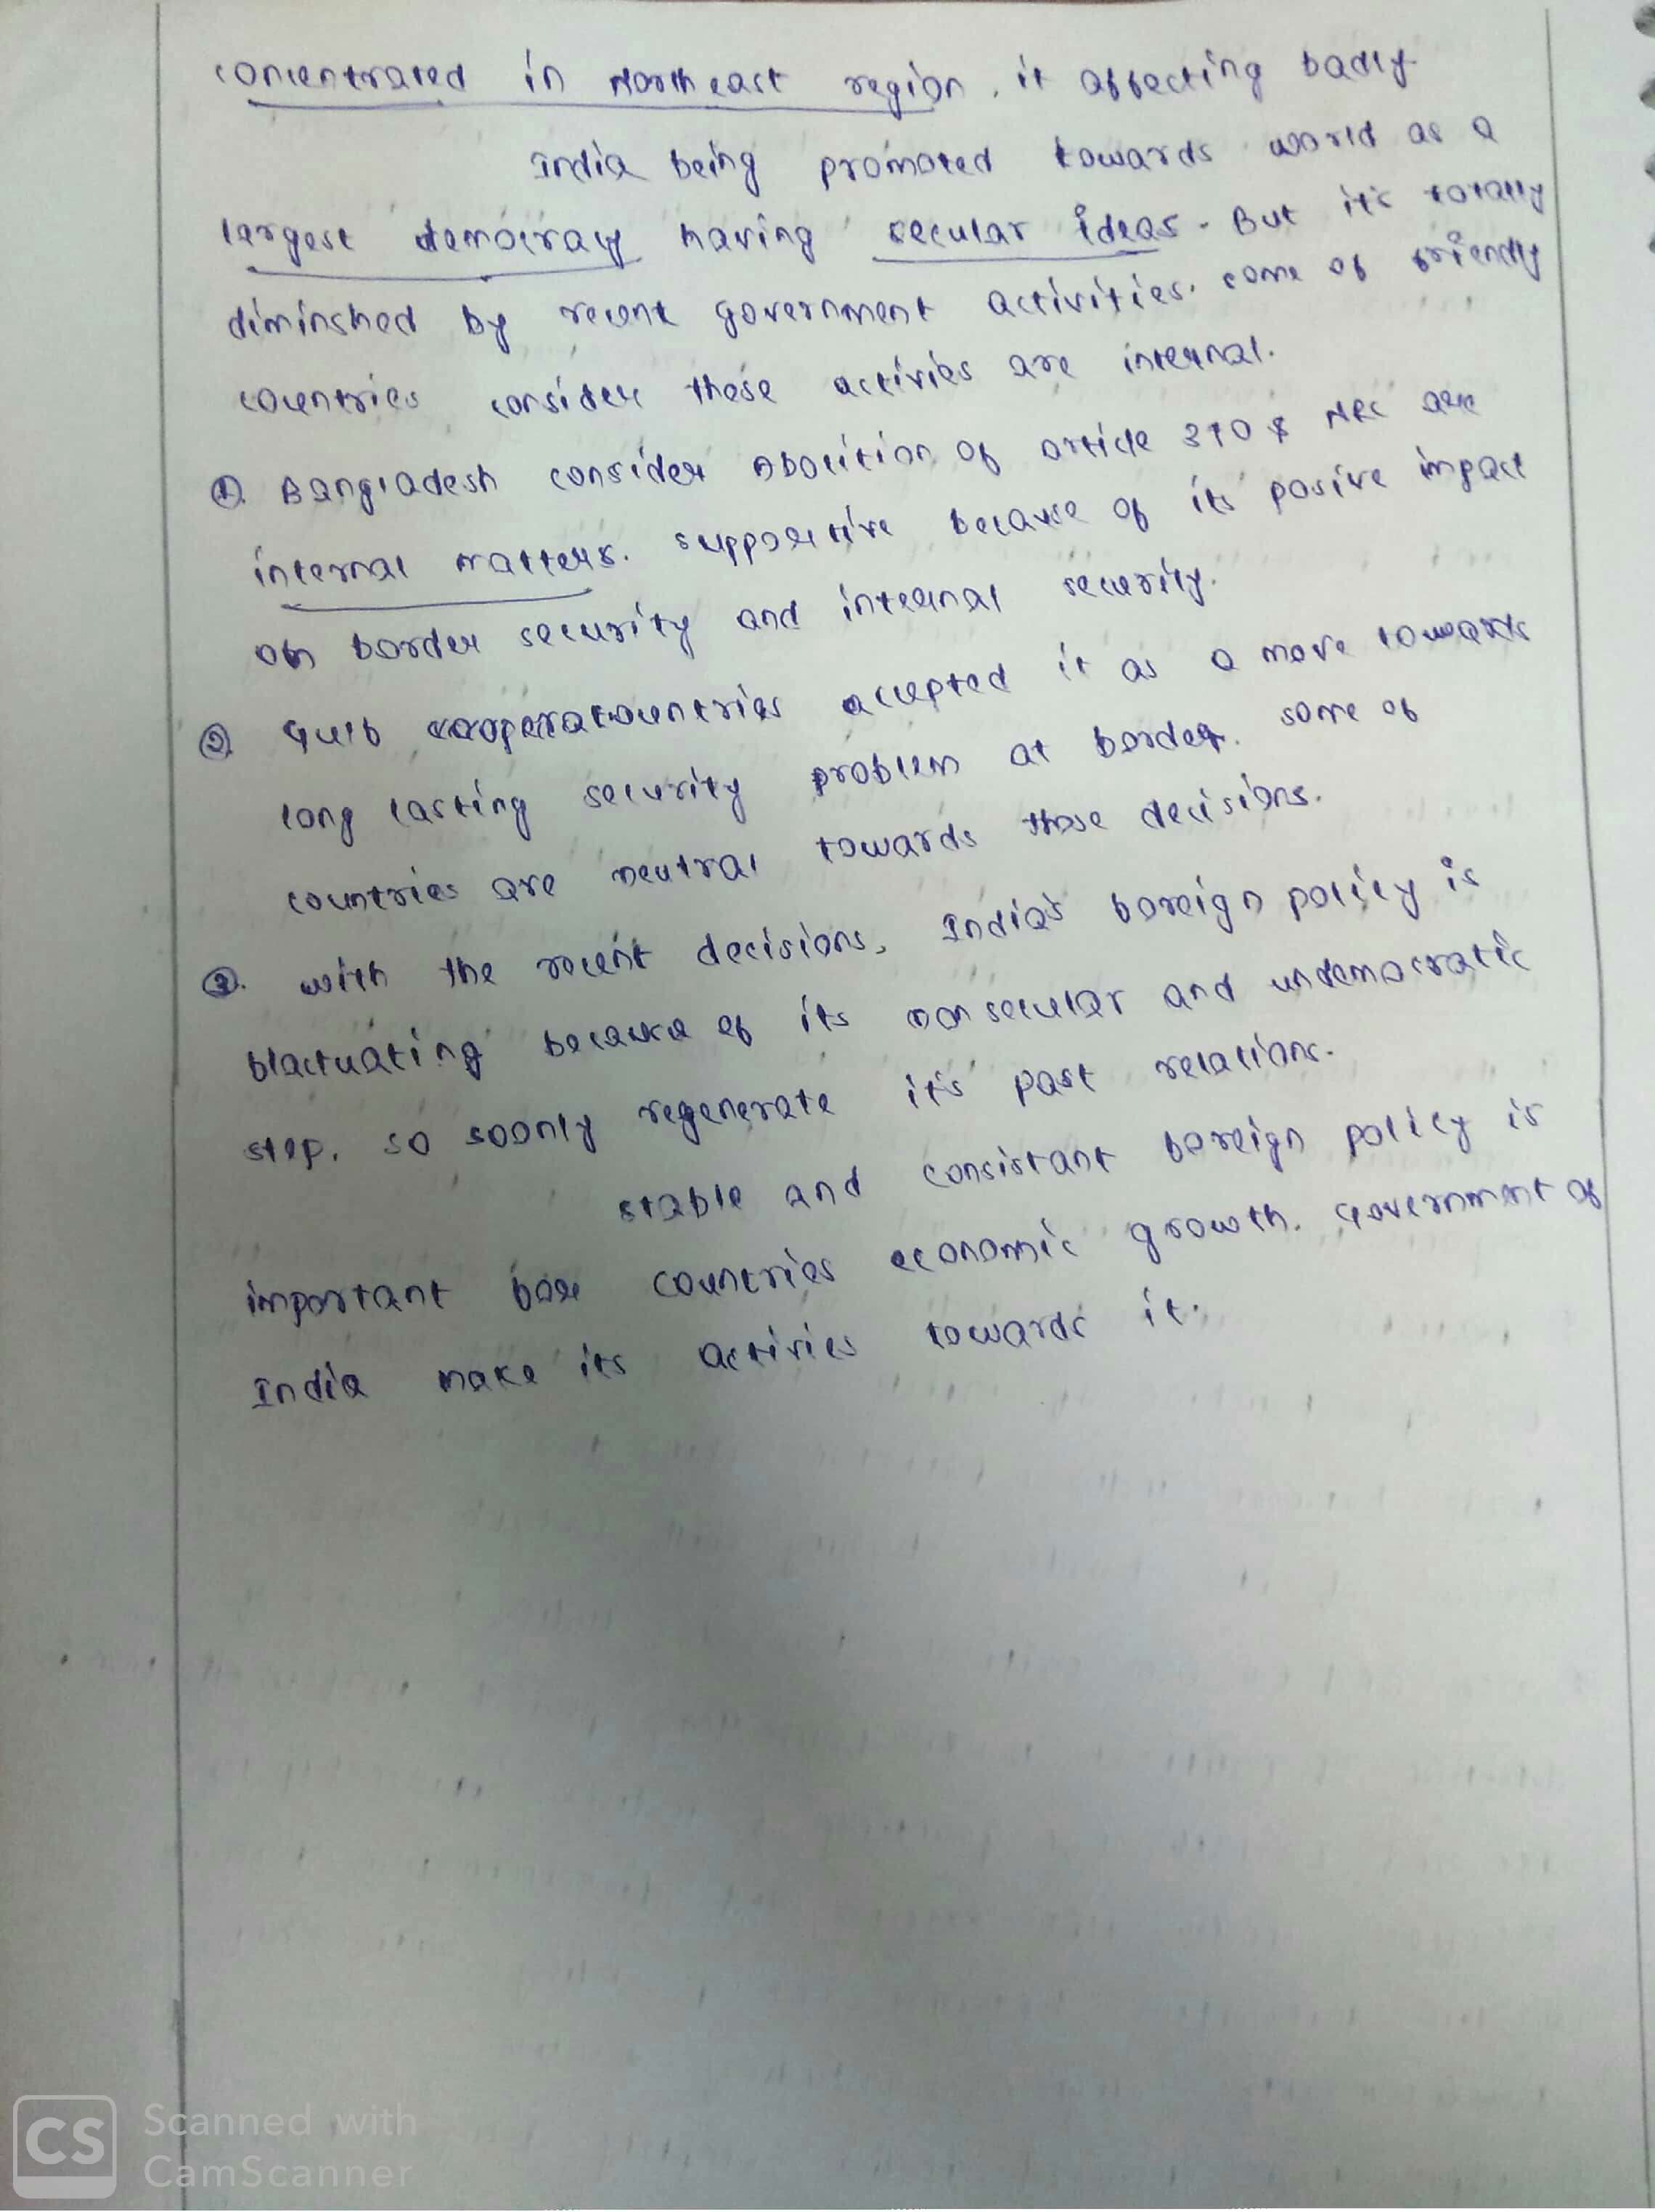 concentrated in North east region, it affecting badly
India being promoted towards world as a
largest democracy having secular ideas. But it's totally
diminshed by recent government activities. some of friendly
countries consider these activies are internal.
①. Bangladesh consider Abolition of article 370 & NRC are
internal matters. supportive because of its posive impact
on border security and internal security.
② Gulf countries accepted it as a move towards
long lasting security problem at border. some of
countries are neutral towards those decisions.
③. with the recent decisions, India's foreign policy is
flactuating because of its non secular and undemocratic
step. so soonly regenerate it's past relations.
stable and consistant foreign policy is
important for countries economic growth. Government of
India make its activies towards it.
CS Scanned with
CamScanner